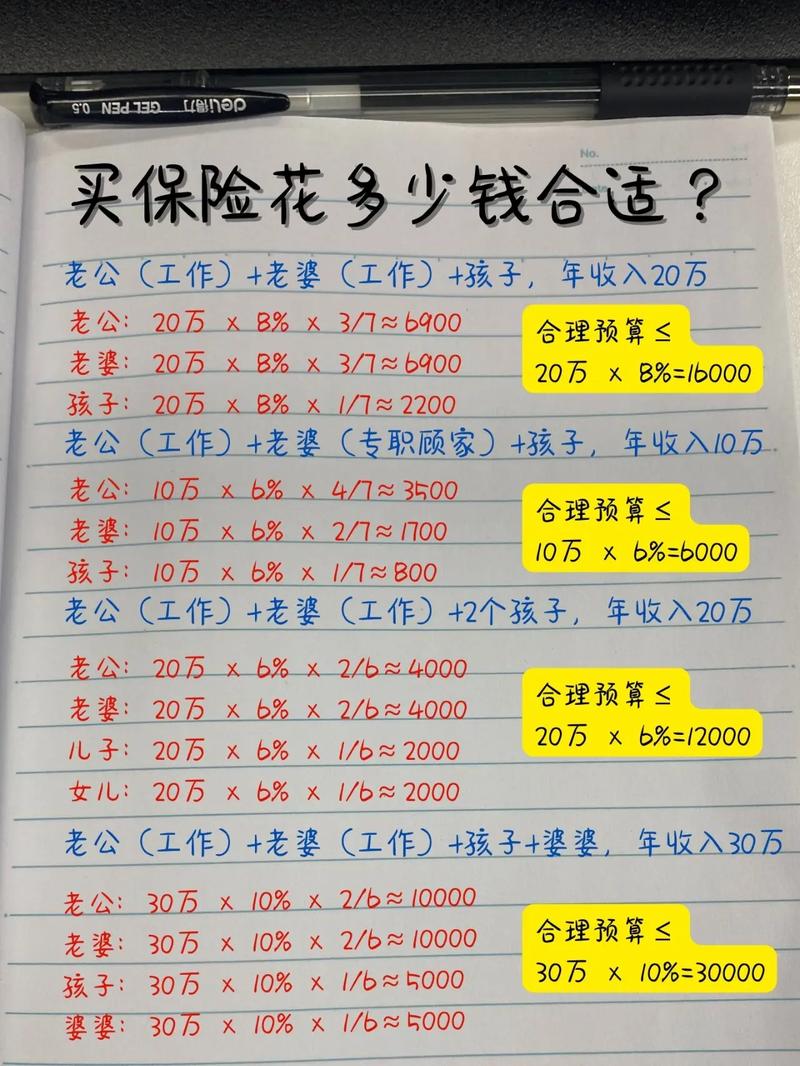 deli得力 GEL PEN 0.5
No.
买保险花多少钱合适？
老公（工作）+老婆（工作）+孩子，年收入20万
老公：20万 x 8% x 3/7≈6900
老婆：20万 x 8% x 3/7≈6900
孩子：20万 x 8% x 1/7≈2200
合理预算≤
20万 x 8%=16000
老公（工作）+老婆（专职顾家）+孩子，年收入10万
老公：10万 x 6% x 4/7≈3500
老婆：10万 x 6% x 2/7≈1700
孩子：10万 x 6% x 1/7≈800
合理预算≤
10万 x 6%=6000
老公（工作）+老婆（工作）+2个孩子，年收入20万
老公：20万 x 6% x 2/6≈4000
老婆：20万 x 6% x 2/6≈4000
儿子：20万 x 6% x 1/6≈2000
女儿：20万 x 6% x 1/6≈2000
合理预算≤
20万 x 6%=12000
老公（工作）+老婆（工作）+孩子+婆婆，年收入30万
老公：30万 x 10% x 2/6≈10000
老婆：30万 x 10% x 2/6≈10000
孩子：30万 x 10% x 1/6≈5000
婆婆：30万 x 10% x 1/6≈5000
合理预算≤
30万 x 10%=30000